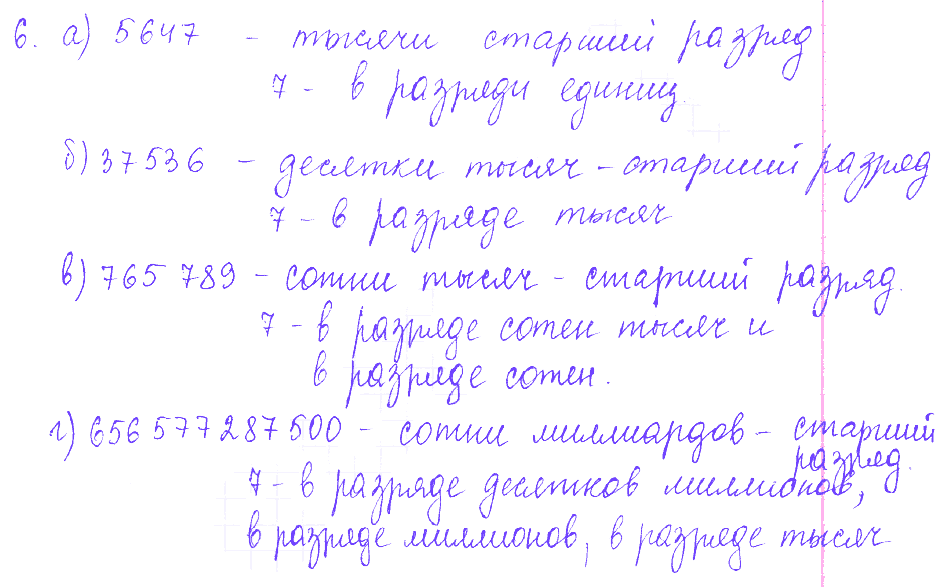 6. а) 5647 - тысячи старший разряд
7 - в разряди единиц.
б) 37536 - десятки тысяч - старший разряд
7 - в разряде тысяч
в) 765 789 - сотни тысяч - старший разряд.
7 - в разряде сотен тысяч и
в разряде сотен.
г) 656 577 287 500 - сотни миллиардов - старший
разряд.
7 - в разряде десятков миллионов,
в разряде миллионов, в разряде тысяч